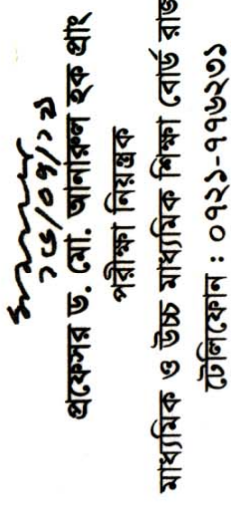 ১৫/০৭/১৭
প্রফেসর ড. মো. আনারুল হক প্রাং
পরীক্ষা নিয়ন্ত্রক
মাধ্যমিক ও উচ্চ মাধ্যমিক শিক্ষা বোর্ড রাজ
টেলিফোন : ০৭২১-৭৭৬২৩১